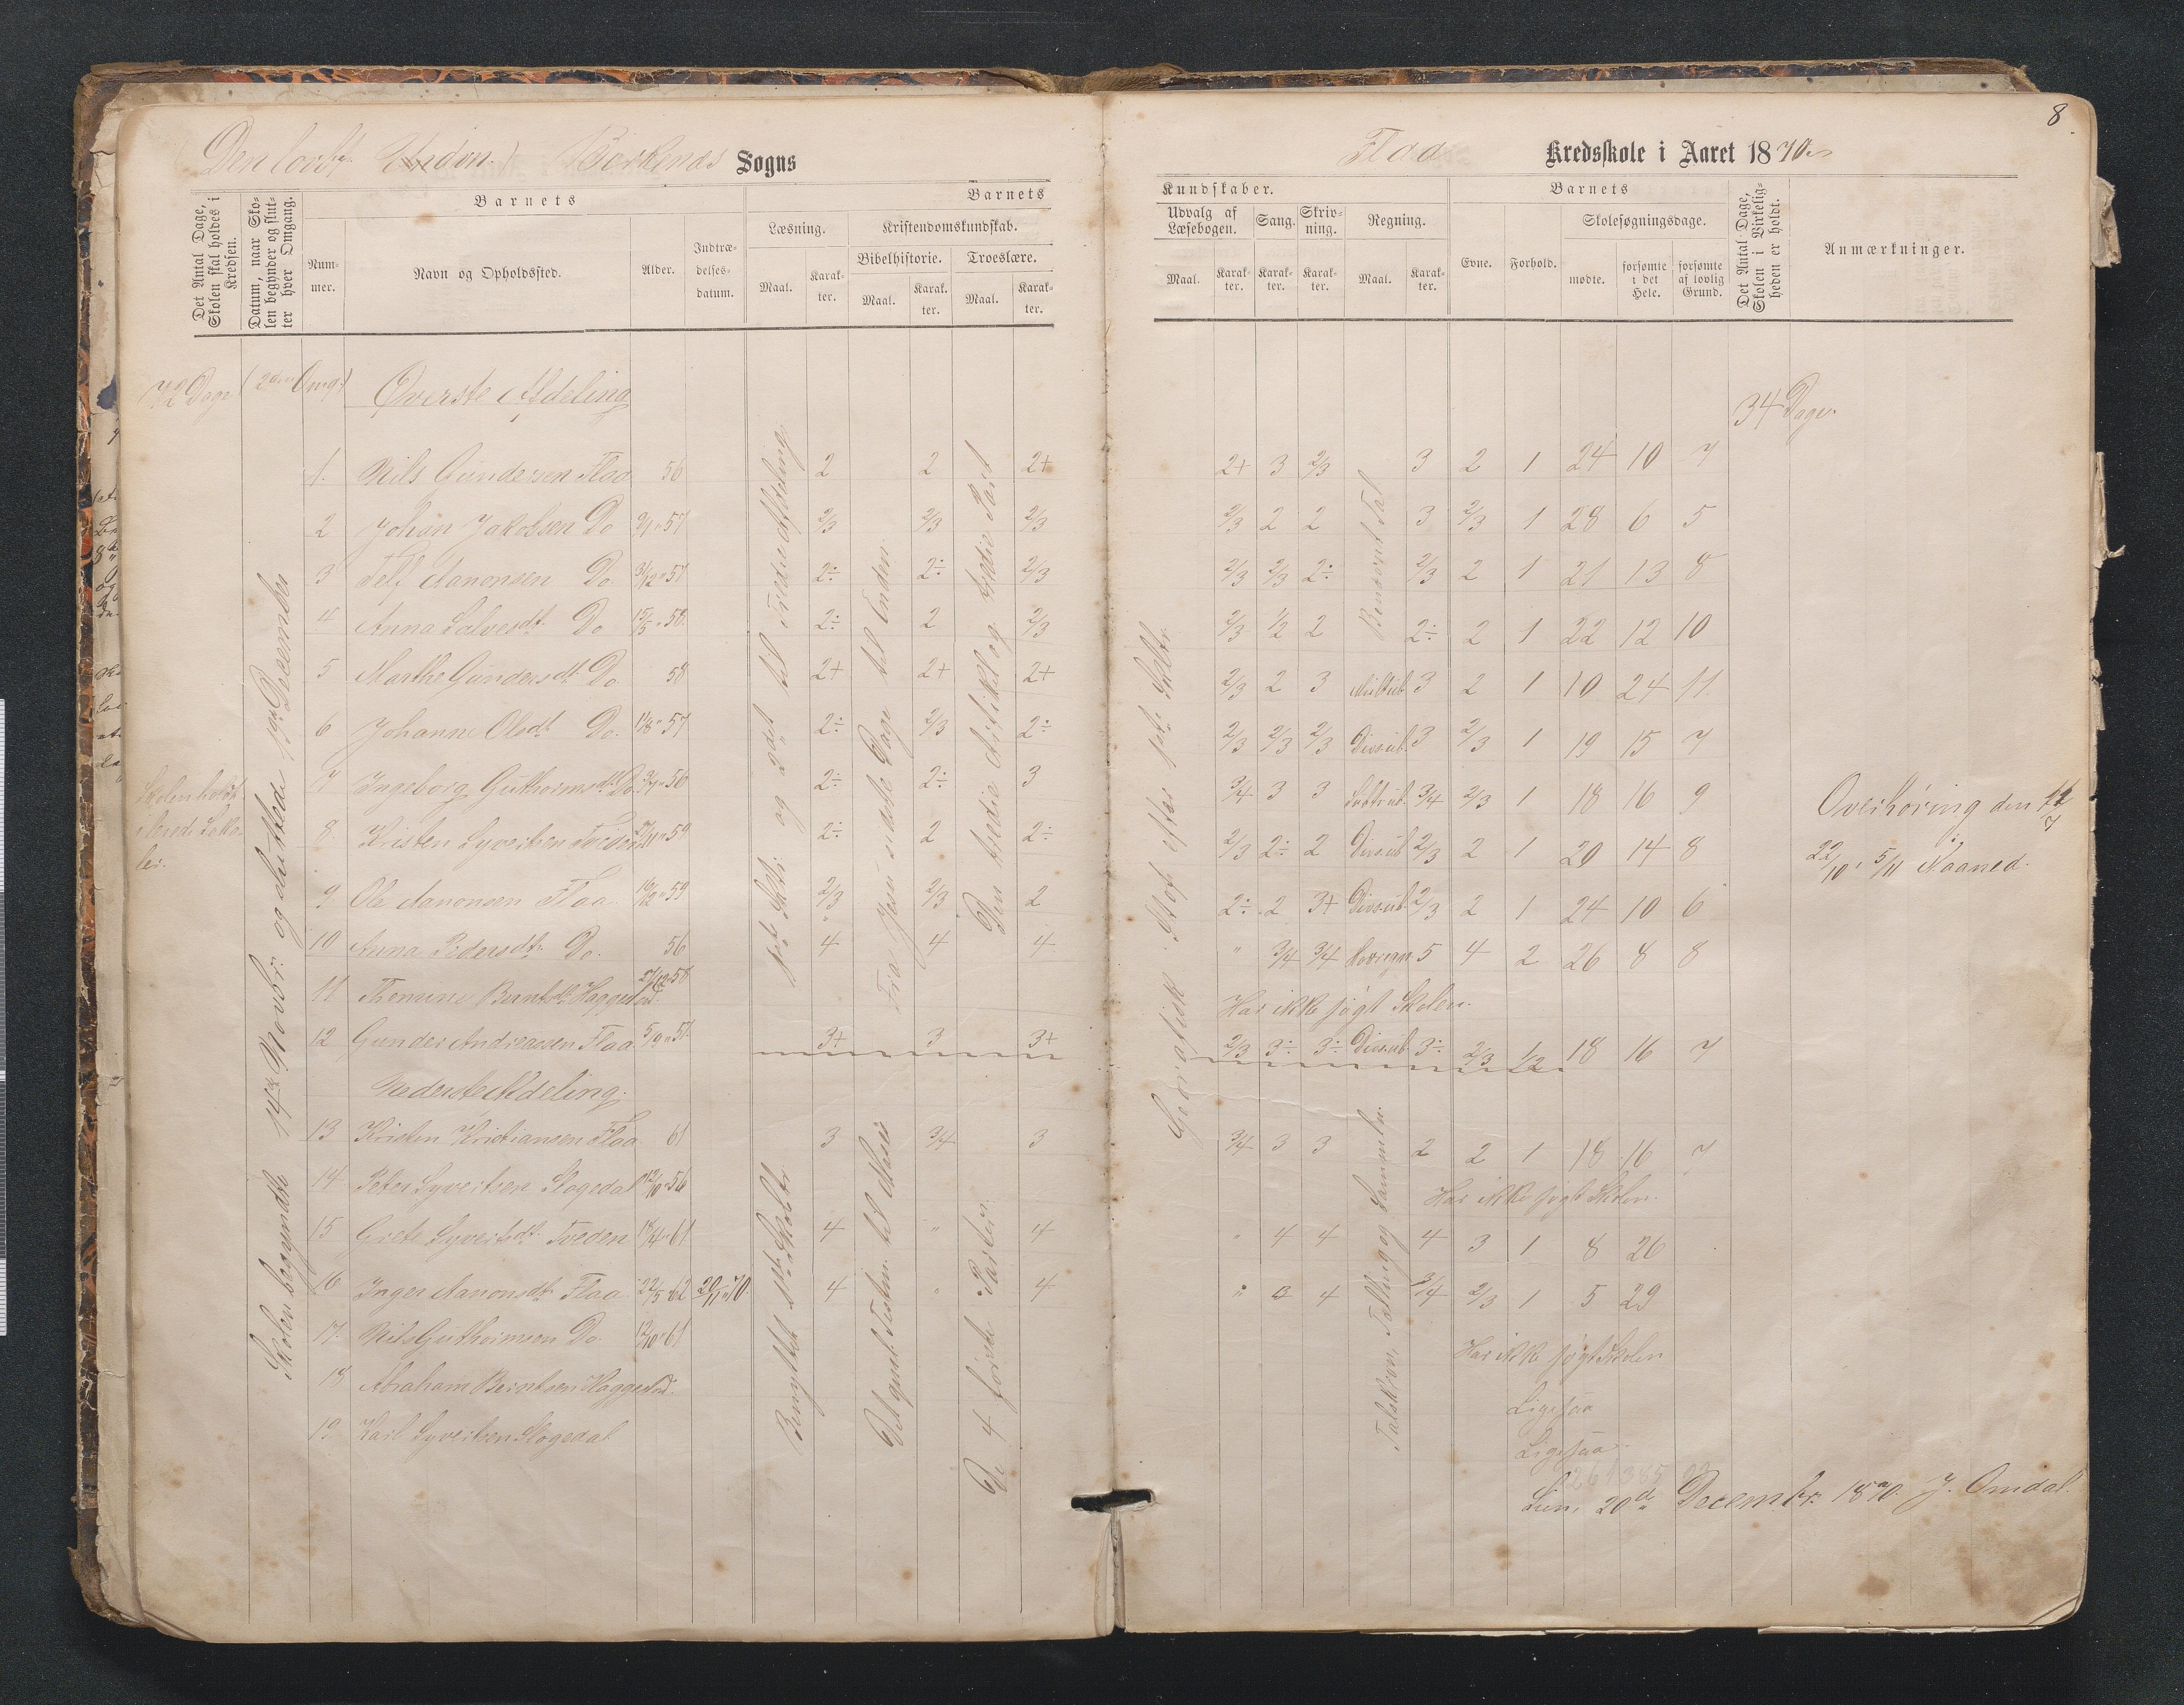 8
Birkenes Sogns
Flaa Kredsskole i Aaret 1870
Det Antal Dage, Skolen skal holdes i Kredsen.
Datum, naar Skolen begynder og slutter hver Omgang.
Barnets
Nummer.
Navn og Opholdssted.
Alder.
Indtrædelsesdatum.
Barnets
Læsning.
Kristendomskundskab.
Bibelhistorie.
Troeslære.
Maal.
Karakter.
Maal.
Karakter.
Maal.
Karakter.
Kundskaber.
Udvalg af Læsebogen.
Sang.
Skrivning.
Regning.
Maal.
Karakter.
Karakter.
Karakter.
Maal.
Karakter.
Barnets
Evne.
Forhold.
Skolesøgningsdage.
mødte.
forsømte i det Hele.
forsømte af lovlig Grund.
Det Antal Dage, Skolen i Virkeligheden er holdt.
Anmærkninger.
72 Dage (2den Omg.) Øverste Afdeling
34 Dage
1. Nils Gundersen Flaa 56 2 2 2+ 2+ 3 2/3 3 2 1 24 10 7
2 Johan Jakobsen Do 57 2/3 2/3 2/3 2/3 2 2 3 2/3 1 28 6 5
3 Aanonsen Do 31/12 57 2÷ 2÷ 2/3 2/3 2/3 2÷ 2/3 2 1 21 13 8
4 Anna Salvesdt. Do 15/5 58 2÷ 2 2/3 2/3 1/2 2 2÷ 2 1 22 12 10
5 Marthe Gundersdt. Do 58 2+ 2+ 2+ 2/3 2 3 3 2 1 10 24 11
6 Johanne Olsdt. Do. 57 2÷ 2/3 2÷ 2/3 2/3 2/3 3 2/3 1 19 15 7
7 Ingeborg Guthormsdt. Do 2÷ 2÷ 3 3/4 3 3 3/4 2/3 1 18 16 9
8. Kristen Syvertsen Tveden 59 2÷ 2 2÷ 2/3 2÷ 2 2/3 2 1 20 14 8
9 Ole Aanonsen Flaa 59 2/3 2/3 2 2÷ 2 3+ 2/3 2 1 24 10 6
10 Anna Pedersdt. Do. 56 4 4 4 " 3/4 3/4 5 4 2 26 8 8
11 Berntsdt. Haggestad 58 Har ikke søgt Skolen.
12 Gunder Andreassen Flaa 5/9 57 3+ 3 3+ 2/3 3÷ 3÷ 3÷ 2/3 1/2 18 16 7
Nederste Afdeling.
13 Kristen Kristiansen Flaa 61 3 3/4 3 3/4 3 3 2 2 1 18 16 7
14 Peter Syvertsen Slogedal 12/10 56 Har ikke søgt Skolen.
15 Grete Syvertsdt. Tveden 18/4 61 4 " 4 " 4 4 4 3 1 8 26
16 Inger Aanonsdt. Flaa 22/5 62 20/11 70. 4 " 4 " 4 3/4 2/3 1 5 29
17. Nils Guthormsen Do 12/10 61 Har ikke søgt Skolen
18 Abraham Berntsen Haggestad. Ligesaa
19 Karl Syvertsen Slogedal Ligesaa.
Skolen holdt i leiede Lokaler.
Skolen begyndte 14de Novbr. og sluttede 19de December
1ste Skoletr. og 2det til Tredie Afdeling
Fra Jesu sidste Dage til Enden.
Den tredie Artikel og tredie Part
Benyttet 1ste Skoletr
Det gamle Testm. til Moses
De 4 første Parter.
Geografisk Stof efter 1ste Skoletr.
Benævnt Tal
Talskrivn, Tælling og Sammenlæ.
Overhøring den
22/10, 5/11 Naaned.
Lien, 20de Decembr. 1870. J. Omdal.